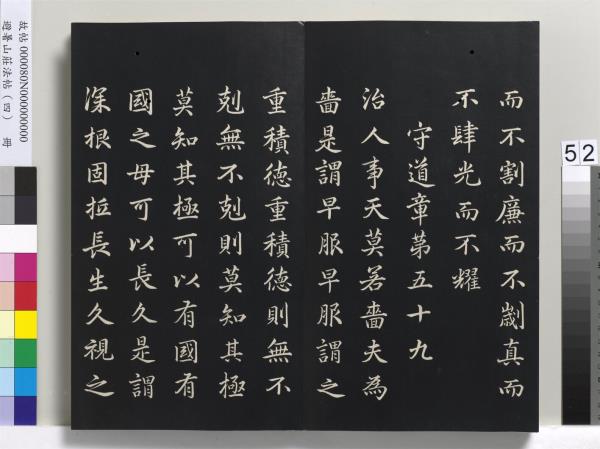 而不割廉而不劌真而
不肆光而不耀
守道章第五十九
治人事天莫若嗇夫為
嗇是謂早服早服謂之
重積徳重積徳則無不
剋無不剋則莫知其極
莫知其極可以有國有
國之母可以長久是謂
深根固柢長生久視之
故帖 000080N000000000
避暑山莊法帖(四) 冊
52